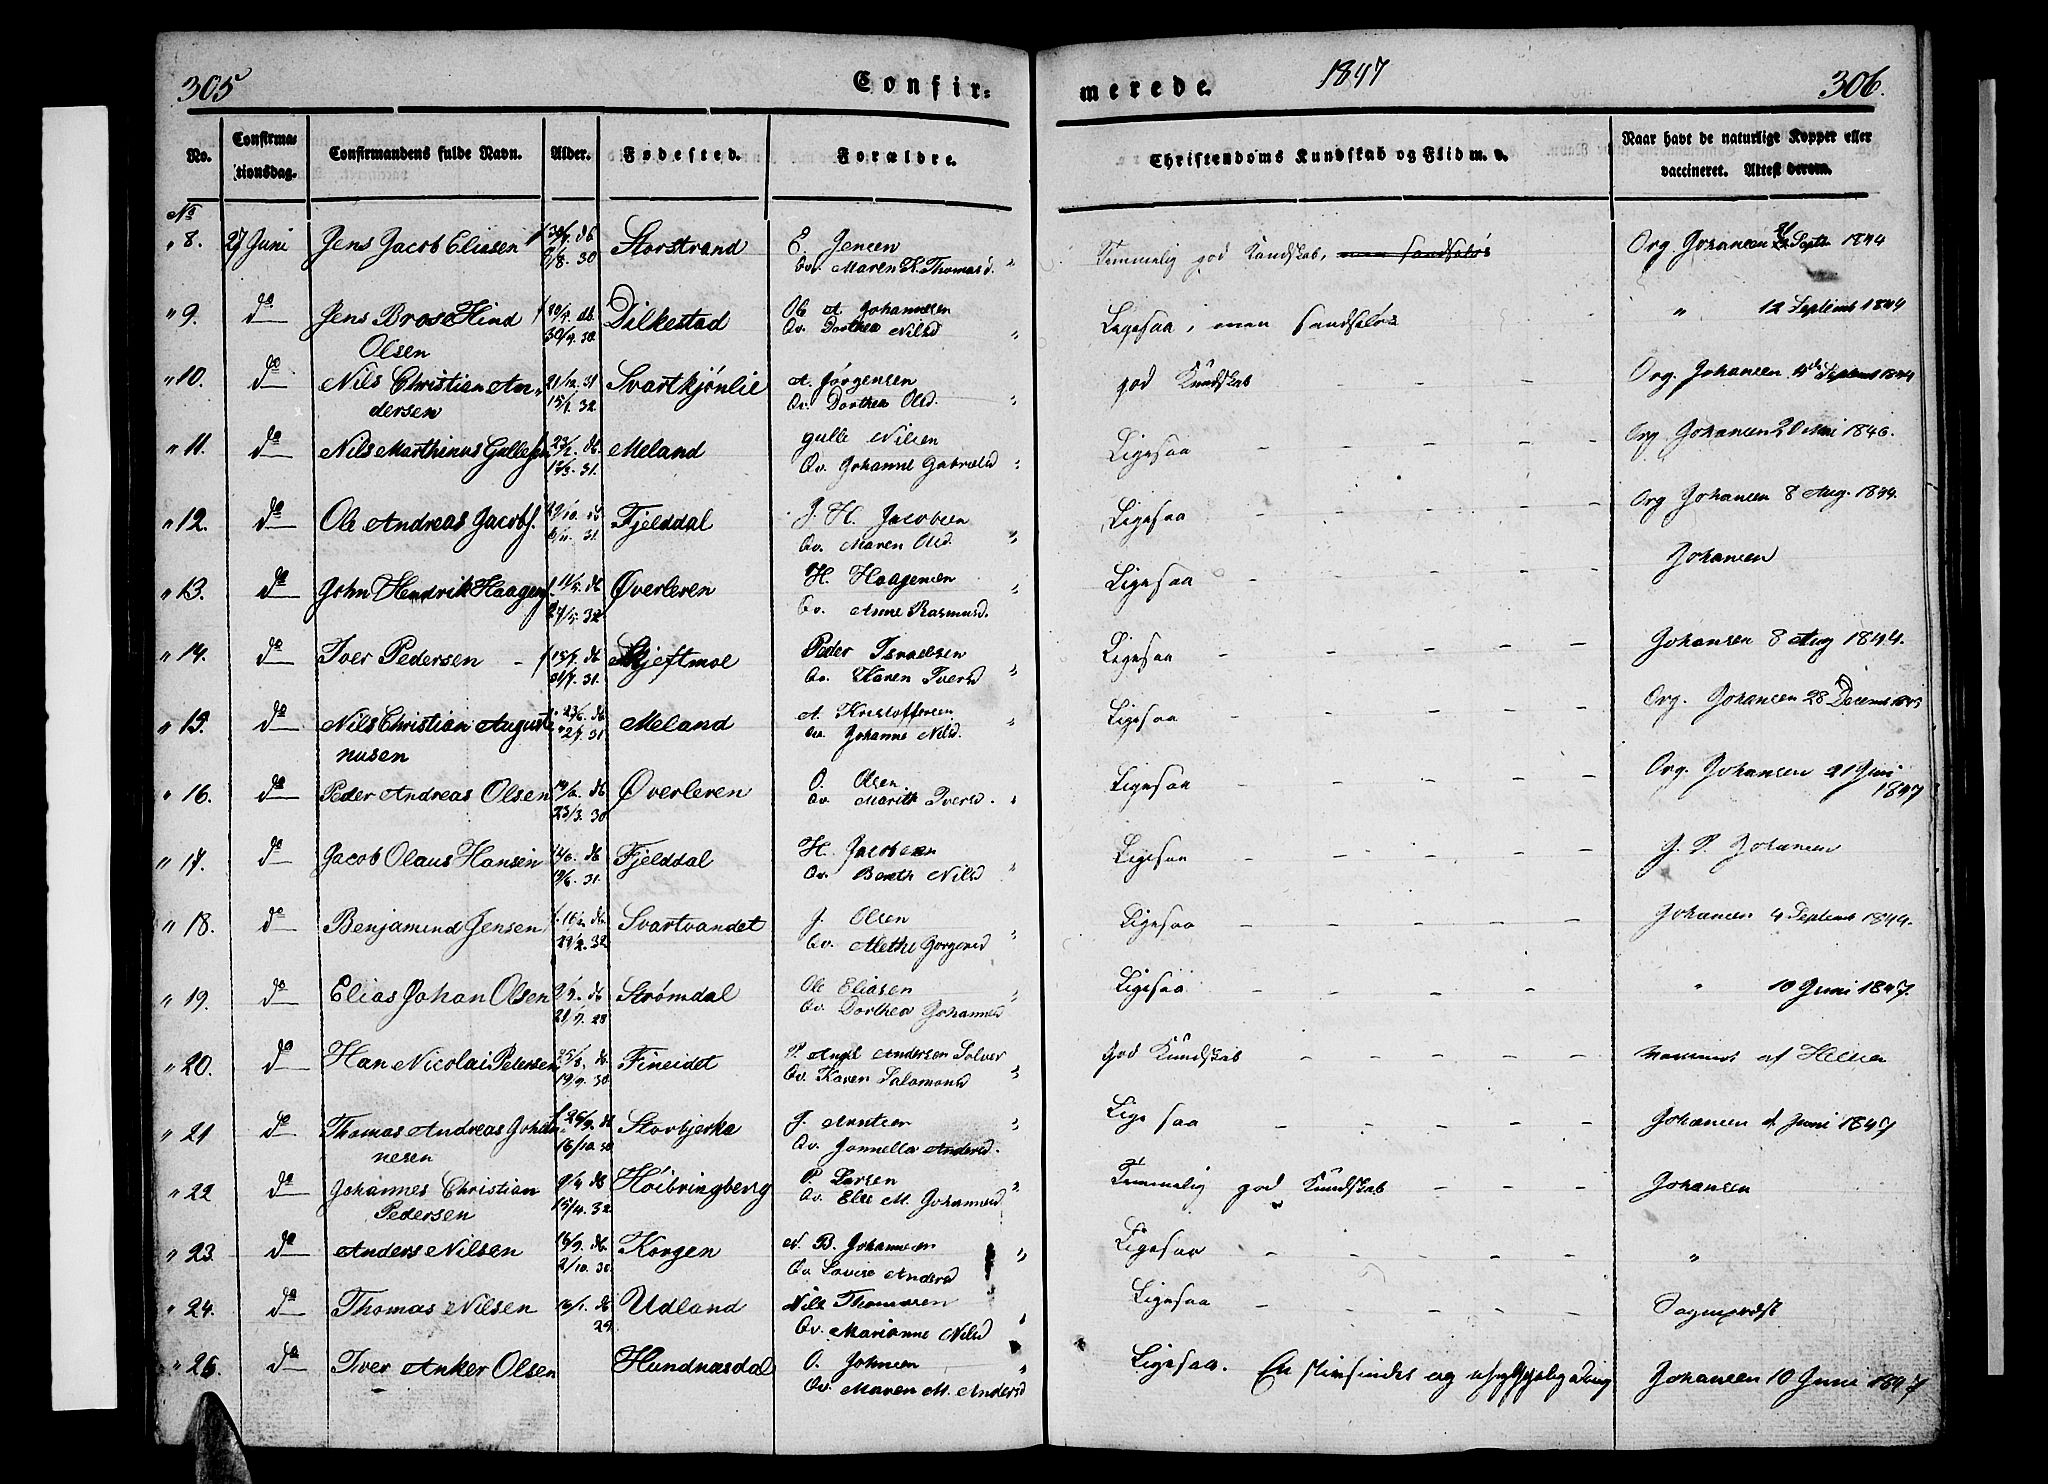 305
Confirmerede.
1847
306.
No.
Confirmationsdag.
Confirmandens fulde Navn.
Alder.
Fødested.
Forældre.
Christendoms Kundskab og Flid m. v.
Naar havt de naturlige Kopper eller vaccineret. Attest derom.
No
" 8. 27 Juni Jens Jacob Eliasen Storstrand E. Jensen Qv. Maren K. Thomasd. Temmelig god Kundskab, Org Johansen Septr 1844
" 9. do Jens Brose Hind Olsen Dilkestad Ole A Johannesen Qv. Dorthea Nilsd Ligesaa, men sandseløs " 12 Septembr 1844
" 10. do Nils Christian Andersen 21/12. 31 15/1. 32 Svartkjønlie A. Jørgensen Qv. Dorthea Olsd. god Kundskab Org. Johansen Septembr 1844
" 11. do Nils Marthinus Gullesen Meland Gulle Nilsen Qv. Johanne Gabrielsd Ligesaa Org Johansen 1846.
" 12. do Ole Andreas Jacobs. 29/10. db 6/11. 31. Fjelddal J. H. Jacobsen Qv. Maren Olsd. Ligesaa Org Johansen 8 Aug. 1844.
" 13. do John Hendrik Haagens. 11/5. db 27/5. 32 Øverleren H. Haagensen Qv. Anne Rasmusd. Ligesaa Johansen
" 14. do Iver Pedersen 15/7. db 31/7. 31. Skjeftmoe Peder Israelsen Qv. Karen Iversd Ligesaa Johansen 8 Aug 1844.
" 15. do Nils Christian Augustinusen 23/6. db 2/7. 31 Meland A. Kristoffersen Qv. Johanne Nilsd. Ligesaa Org. Johansen 28 Decembr
" 16. do Peder Andreas Olsen db 23/3. 30 Øverleren O. Olsen Qv. Marith Iversd. Ligesaa Org. Johansen 21 Juni 1847
" 17. do Jacob Olaus Hansen db 19/6. 31. Fjelddal H. Jacobsen Qv. Berith Nilsd Ligesaa J. P. Johansen
" 18. do Benjamind Jensen db 29/2. 32 Svartvandet J. Olsen Qv. Alethe Jørgensd Ligesaa Johansen 4 Septembr 1844.
" 19. do Elias Johan Olsen db Strømdal Ole Eliasen Qv. Dorthea Johannesd Ligesaa " 10 Juni 1847.
" 20. do Han Nicolai Petersen 25/8. db 19/9. 30 Fineidet P. Angel Andersen Solver Qv. Karen Salomonsd god Kundskab af
" 21 do Thomas Andreas Johannesen db 16/10. 30 Storbjerka J. Arntsen Qv. Jonnella Andersd. Lige saa Johansen Juni 1847
" 22 do Johannes Christian Pedersen 9/4 db 15/4. 32 Høibringberg P. Larsen Qv. Else M. Johannesd Temmelig god Kundskab Johansen
" 23. do Anders Nilsen db 2/10. 30 Korgen N. B. Johannesen Qv Lovise Andersd Ligesaa "
" 24. do Thomas Nilsen 16/1. db 29 Udland Nils Thomasen Qv. Marianne Nilsd Ligesaa
" 25. do Iver Anker Olsen Hundnæsdal O. Johnsen Qv. Maren M. Andersd Ligesaa. Johansen 10 Juni 1847